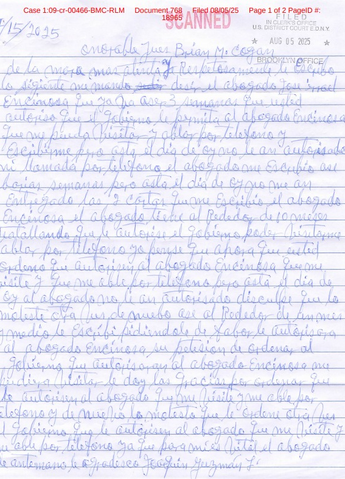 Case 1:09-cr-00466-BMC-RLM Document 768 Filed 08/05/25 Page 1 of 2 PageID #: 18965
SCANNED
FILED
IN CLERK'S OFFICE
U.S. DISTRICT COURT E.D.N.Y.
★ AUG 05 2025 ★
BROOKLYN OFFICE
/15/2025
onorable Jues Brian M. Cogan
de la mera mas atenta y Respetuosamente le Escribo
lo siguiente me mando decir el abogado
Encinosa que ya 3 semanas que usted
autoriso que el gobierno le permita al abogado Encinosa
que me pueda Visitar y ablar por telefono y
Escribirme pero asta el dia de oy no le an autorisado
ni llamada por telefono el abogado me Escribio
semanas pero asta el dia de oy no me an
Entregado las 2 cartas que me Escribio el abogado
Encinosa el abogado tiene al Rededor de 10 meses
batallando que le autorise el gobierno poder Visitarme
ablar por telefono yo pense que aora que usted
ordeno que autorisen al abogado Encinosa que me
visite y que me able por telefono pero asta el dia de
oy al abogado no le an autorisado disculpe que lo
moleste otra Ves de nuebo ase al Rededor de un mes
y medio le Escribi pidiendole de fabor le autorisara
al abogado Encinosa, su petision de ordenar al
gobierno que autorisaran al abogado Encinosa me
pudiera Visitar le doy las Gracias por ordenar que
le autorisen al abogado que me Visite y me able por
telefono y de nuebo lo molesto que le ordene otra Ves
al gobierno que le autorisen al abogado que me Visite y
me able por telefono ya que para mi es Vital el abogado
de antemano le agradesco Joaquin Guzman